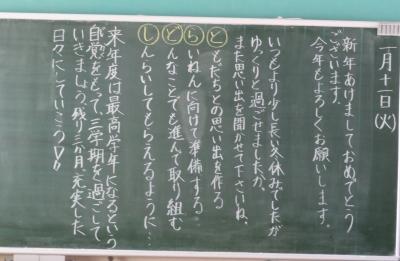 一月十一日(火)
新年あけまして、おめでとう
ございます。
今年もよろしくお願いします。
いつもより少し長い冬休みでしたが
ゆっくりと過ごせましたか。
また思い出を聞かせて下さいね。
ともだちとの思い出を作る
らいねんに向けて準備する
どんなことでも進んで取り組む
しんらいしてもらえるように…
来年度は最高学年になるという
自覚をもって、三学期を過ごして
いきましょう。残り三か月、充実した
日々にしていこう!!